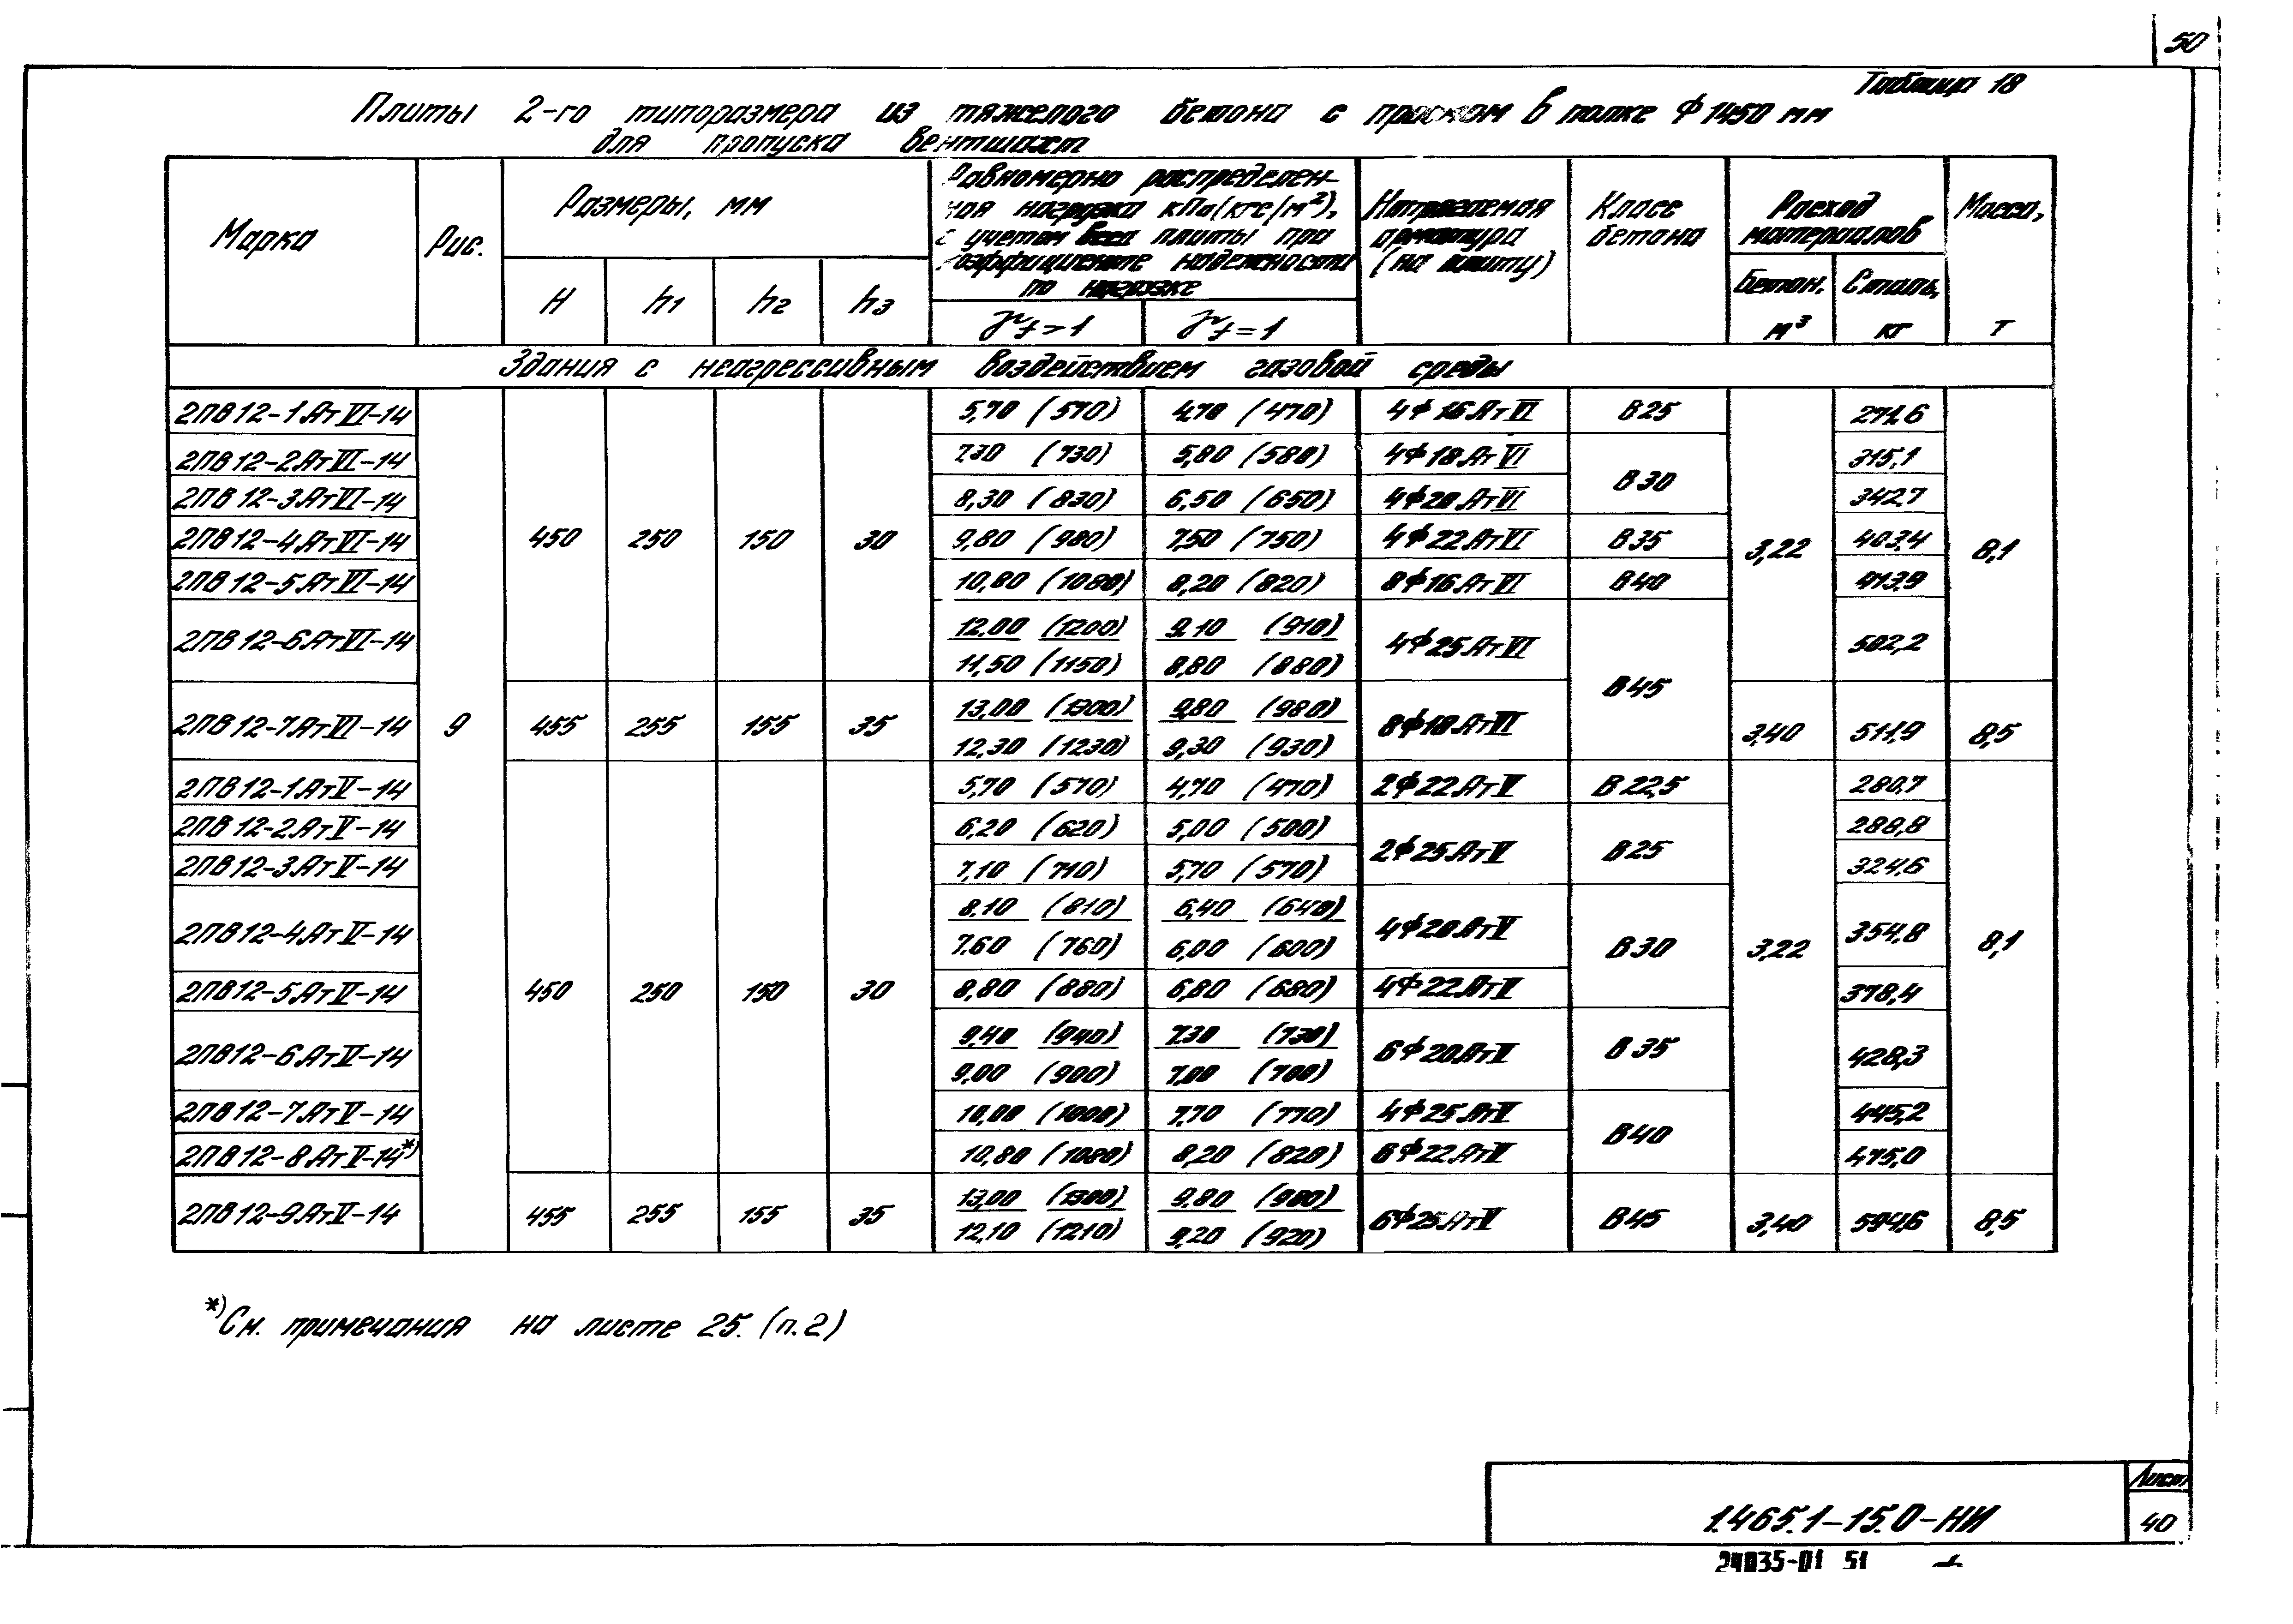 50
Таблица 18
Плиты 2-го типоразмера из тяжелого бетона с проемом в полке Ф 1450 мм
для пропуска вентшахт
Марка Рис. Размеры, мм Равномерно распределен-
ная нагрузка кПа (кгс/м²),
с учетом веса плиты при
коэффициенте надежности
по нагрузке
Напрягаемая
арматура
(на плиту)
Класс
бетона
Расход
материалов
Масса,
т
H h1 h2 h3 γf>1 γf=1 Бетон, м³ Сталь, кг
Здания с неагрессивным воздействием газовой среды
2ПВ12-1АтVI-14 5,70 (570) 4,70 (470) 4Ф16АтVI В25 271,6
2ПВ12-2АтVI-14 7,30 (730) 5,80 (580) 4Ф18АтVI В30 315,1
2ПВ12-3АтVI-14 8,30 (830) 6,50 (650) 4Ф20АтVI 342,7
2ПВ12-4АтVI-14 450 250 150 30 9,80 (980) 7,50 (750) 4Ф22АтVI В35 3,22 403,4 8,1
2ПВ12-5АтVI-14 10,80 (1080) 8,20 (820) 8Ф16АтVI В40 413,9
2ПВ12-6АтVI-14 12,00 (1200) 9,10 (910) 4Ф25АтVI В45 502,2
11,50 (1150) 8,80 (880)
2ПВ12-7АтVI-14 9 455 255 155 35 13,00 (1300) 9,80 (980) 8Ф18АтVI 3,40 511,9 8,5
12,30 (1230) 9,30 (930)
2ПВ12-1АтV-14 5,70 (570) 4,70 (470) 2Ф22АтV В22,5 280,7
2ПВ12-2АтV-14 6,20 (620) 5,00 (500) 2Ф25АтV В25 288,8
2ПВ12-3АтV-14 7,10 (710) 5,70 (570) 324,6
2ПВ12-4АтV-14 8,10 (810) 6,40 (640) 4Ф20АтV В30 3,22 354,8 8,1
7,60 (760) 6,00 (600)
2ПВ12-5АтV-14 450 250 150 30 8,80 (880) 6,80 (680) 4Ф22АтV 378,4
2ПВ12-6АтV-14 9,40 (940) 7,30 (730) 6Ф20АтV В35 428,3
9,00 (900) 7,00 (700)
2ПВ12-7АтV-14 10,00 (1000) 7,70 (770) 4Ф25АтV В40 445,2
2ПВ12-8АтV-14*) 10,80 (1080) 8,20 (820) 6Ф22АтV 475,0
2ПВ12-9АтV-14 455 255 155 35 13,00 (1300) 9,80 (980) 6Ф25АтV В45 3,40 594,6 8,5
12,10 (1210) 9,20 (920)
*) См. примечания на листе 25. (п.2)
1.465.1-15.0-НИ
Лист
40
24035-01 51